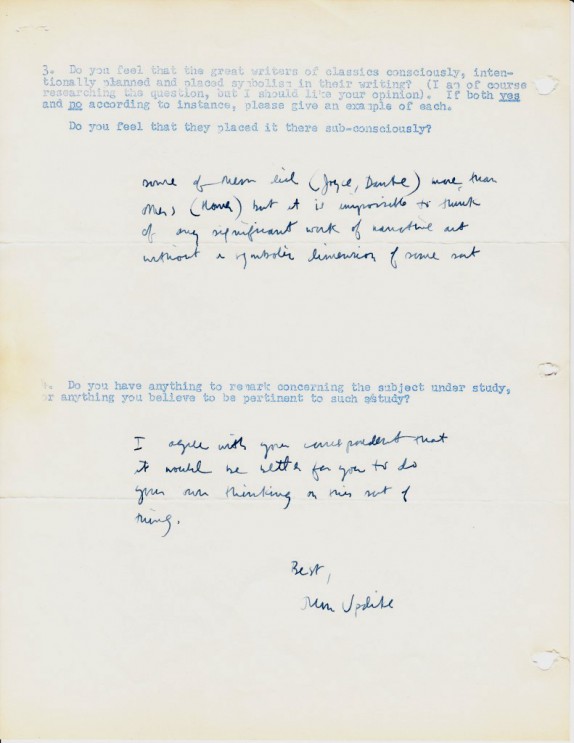 3. Do you feel that the great writers of classics consciously, inten-
tionally planned and placed symbolism in their writing? (I am of course
researching the question, but I should like your opinion). If both yes
and no according to instance, please give an example of each.
Do you feel that they placed it there sub-consciously?
some of them did (Joyce, Dante) more than
others (Homer) but it is impossible to think
of any significant work of narrative art
without a symbolic dimension of some sort
4. Do you have anything to remark concerning the subject under study,
or anything you believe to be pertinent to such a study?
I agree with your correspondent that
it would be better for you to do
your own thinking on this sort of
thing.
Best,
John Updike